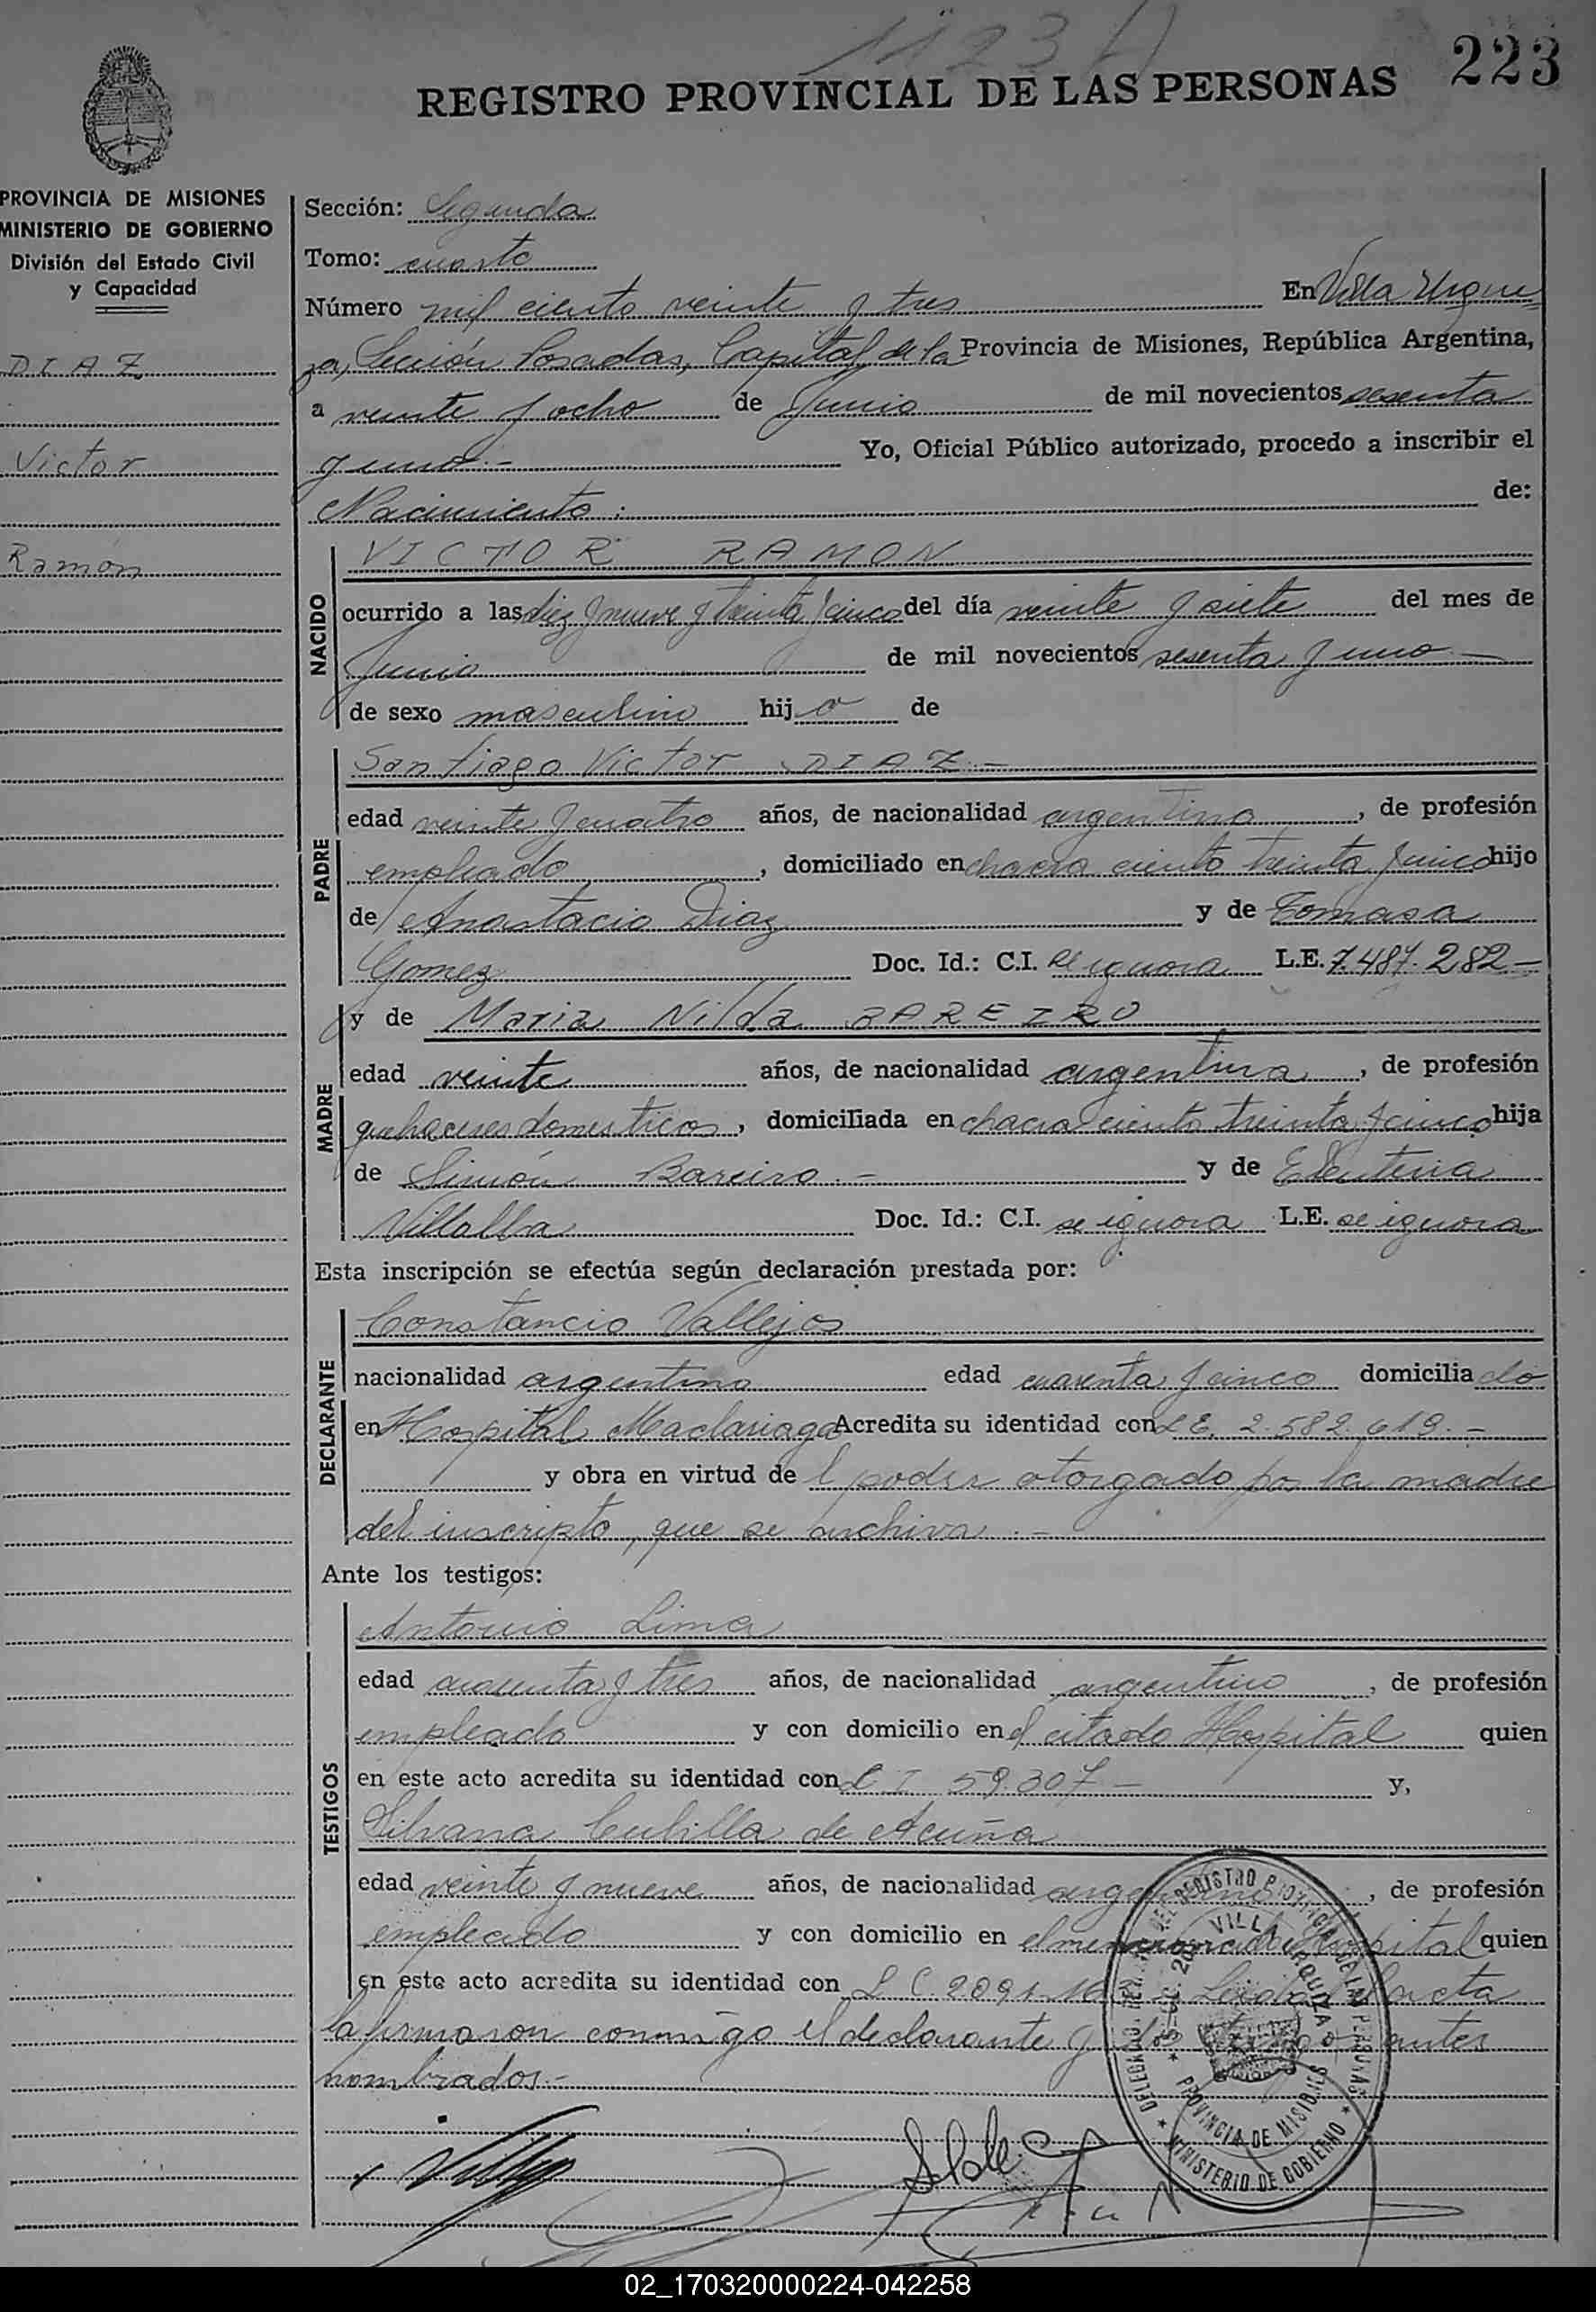 1123
223
REGISTRO PROVINCIAL DE LAS PERSONAS
PROVINCIA DE MISIONES
MINISTERIO DE GOBIERNO
División del Estado Civil
y Capacidad
DIAZ
Victor
Ramón
Sección: Segunda
Tomo: cuarto
Número mil ciento veinte y tres En Villa Urqui
za, Sección Posadas, Capital de la Provincia de Misiones, República Argentina,
a veinte y ocho de Junio de mil novecientos sesenta
y uno.- Yo, Oficial Público autorizado, procedo a inscribir el
Nacimiento: de:
NACIDO
VICTOR RAMON
ocurrido a las diez y nueve y treinta y cinco del día veinte y siete del mes de
Junio de mil novecientos sesenta y uno.-
de sexo masculino hijo de
PADRE
Santiago Victor DIAZ.-
edad veinte y cuatro años, de nacionalidad argentino, de profesión
empleado, domiciliado en chacra ciento treinta y cinco hijo
de Anastacio Diaz y de Tomasa
Gomez Doc. Id.: C.I. se ignora L.E. 7.487.282-
MADRE
y de Maria Nilda BAREIRO
edad veinte años, de nacionalidad argentina, de profesión
quehaceres domesticos, domiciliada en chacra ciento treinta y cinco hija
de Simón Bareiro.- y de Eleuteria
Villalba Doc. Id.: C.I. se ignora L.E. se ignora
Esta inscripción se efectúa según declaración prestada por:
DECLARANTE
Constancio Vallejos
nacionalidad argentino edad cuarenta y cinco domiciliado
en Hospital Madariaga Acredita su identidad con L.E. 2.582.619.-
y obra en virtud de l poder otorgado por la madre
del inscripto, que se archiva.-
Ante los testigos:
TESTIGOS
Antonio Lima
edad cuarenta y tres años, de nacionalidad argentino, de profesión
empleado y con domicilio en el citado Hospital quien
en este acto acredita su identidad con C I 59.307- y,
Silvana Cubilla de Acuña
edad veinte y nueve años, de nacionalidad argentina, de profesión
empleado y con domicilio en el mencionado Hospital quien
en este acto acredita su identidad con L C. 2091 Leida el acta
la firmaron conmigo el declarante y los testigos antes
nombrados.-
DELEGADO DEL REGISTRO PROVINCIAL DE LAS PERSONAS
VILLA URQUIZA
PROVINCIA DE MISIONES
MINISTERIO DE GOBIERNO
02_170320000224-042258